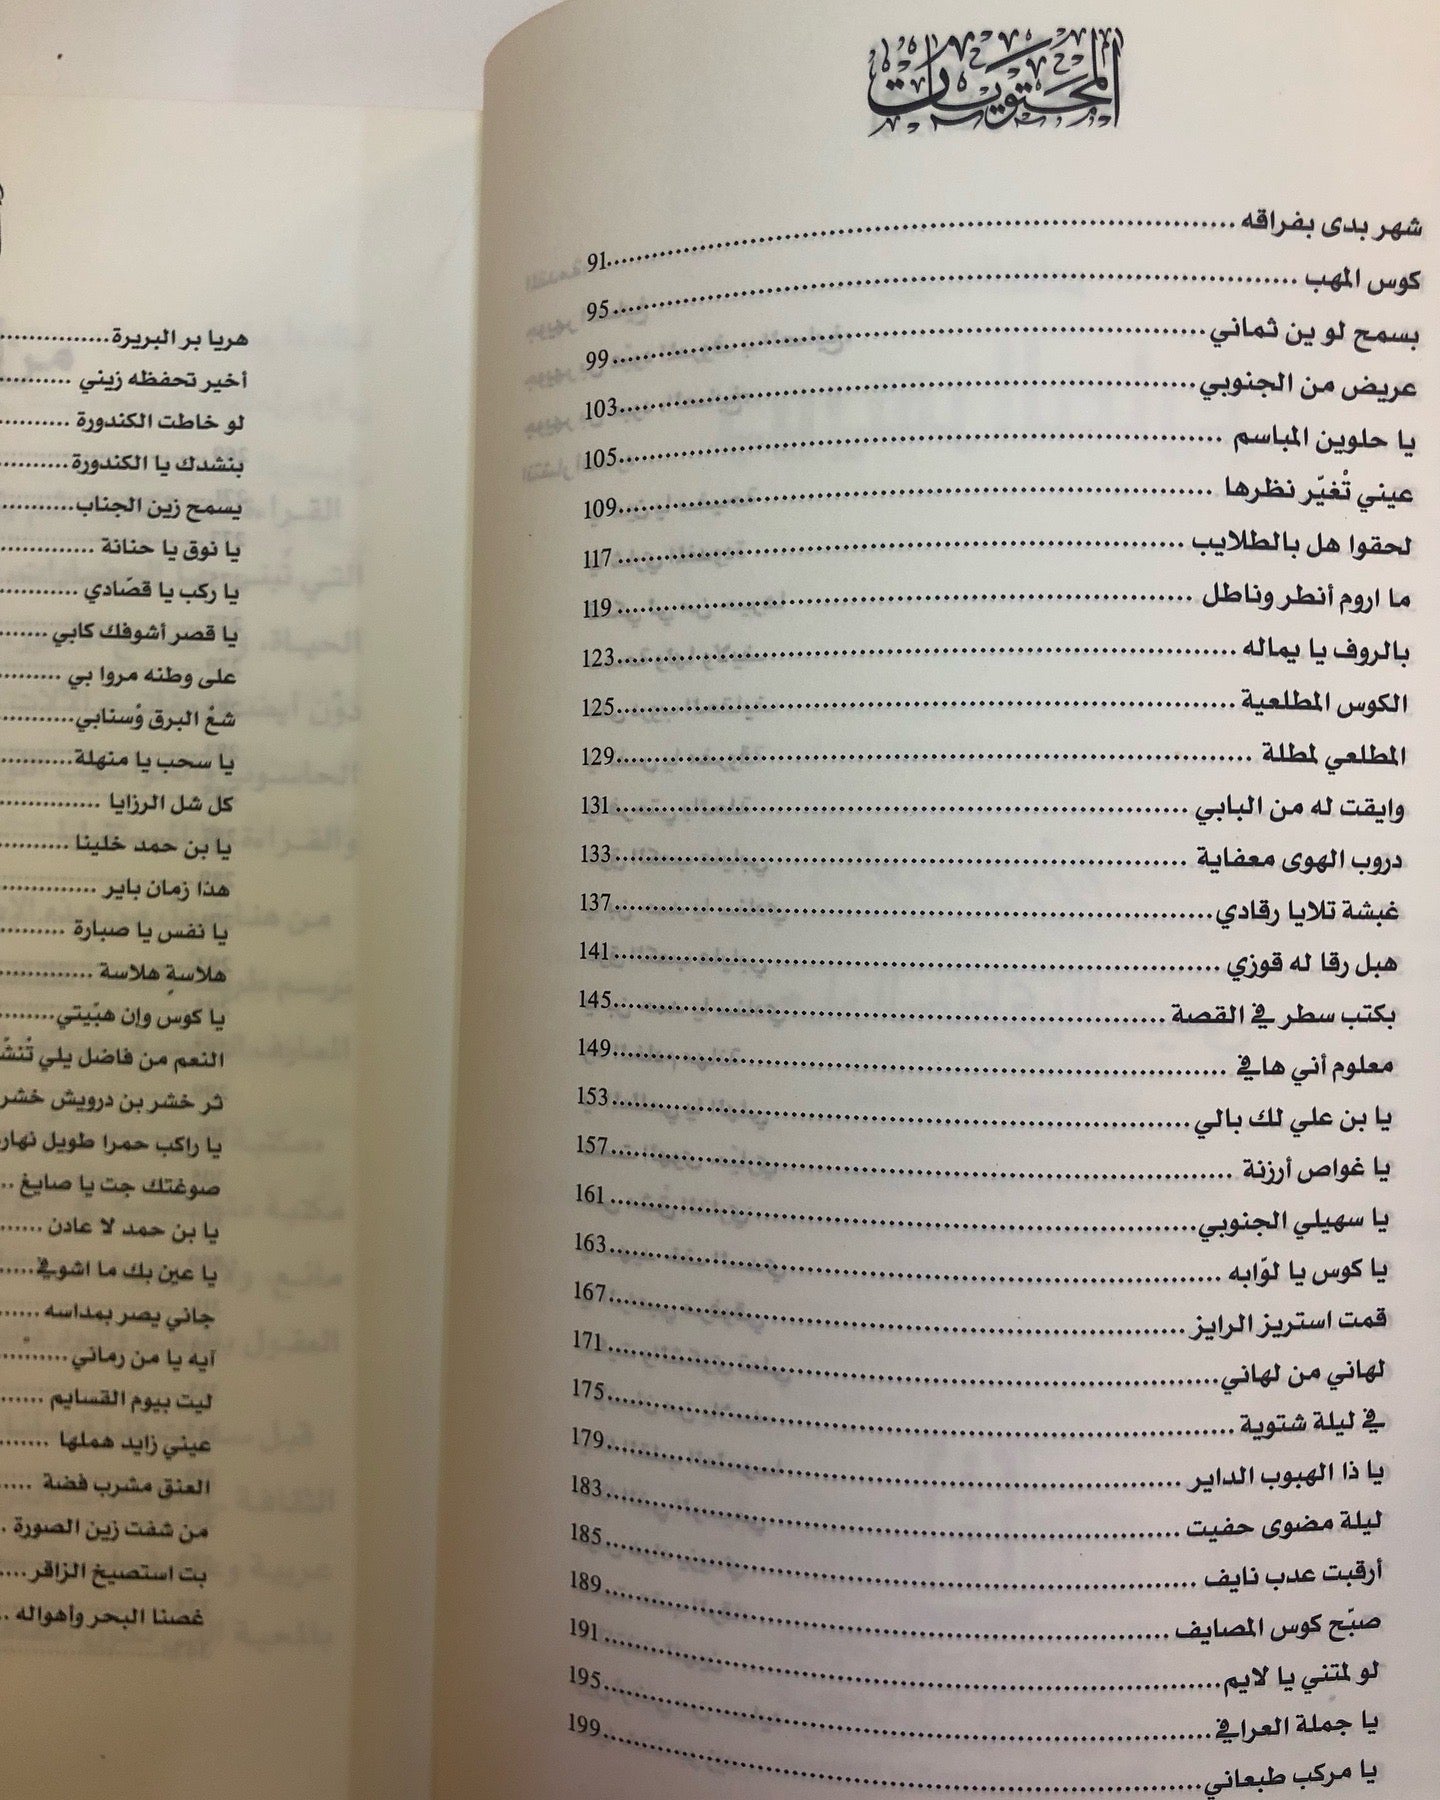 المحتويات
شهر بدى بفراقه 91
كوس المهب 95
بسمح لو ين ثماني 99
عريض من الجنوبي 103
يا حلوين المباسم 105
عيني تْغيّر نظرها 109
لحقوا هل بالطلايب 117
ما اروم أنطر وناطل 119
بالروف يا يماله 123
الكوس المطلعية 125
المطلعي لمطلة 129
وايقت له من البابي 131
دروب الهوى معفاية 133
غبشة تلايا رقادي 137
هبل رقا له قوزي 141
بكتب سطر في القصة 145
معلوم أني هافي 149
يا بن علي لك بالي 153
يا غواص أرزنة 157
يا سهيلي الجنوبي 161
يا كوس يا لوّابه 163
قمت استريز الرايز 167
لهاني من لهاني 171
في ليلة شتوية 175
يا ذا الهبوب الداير 179
ليلة مضوى حفيت 183
أرقبت عدب نايف 185
صبّح كوس المصايف 189
لو لمتني يا لايم 191
يا جملة العرافي 195
يا مركب طبعاني 199
هريا بر البريرة
أخير تحفظه زيني
لو خاطت الكندورة
بنشدك يا الكندورة
يسمح زين الجناب
يا نوق يا حنانة
يا ركب يا قصّادي
يا قصر أشوفك كابي
على وطنه مروا بي
شعْ البرق وْسنابي
يا سحب يا منهلة
كل شل الرزايا
يا بن حمد خلينا
هذا زمان باير
يا نفس يا صبارة
هلاسةٍ هلاسة
يا كوس وإن هبّيتي
النعم من فاضل يلي
ثر خشر بن درويش خشر
يا راكب حمرا طويل
صوغتك جت يا صايغ
يا بن حمد لا عادن
يا عين بك ما اشوفي
جاني يصر بمداسه
آيه يا من رماني
ليت بيوم القسايم
عيني زايد هملها
العنق مشرب فضة
من شفت زين الصورة
بت استصيخ الزاقر
غصنا البحر وأهواله